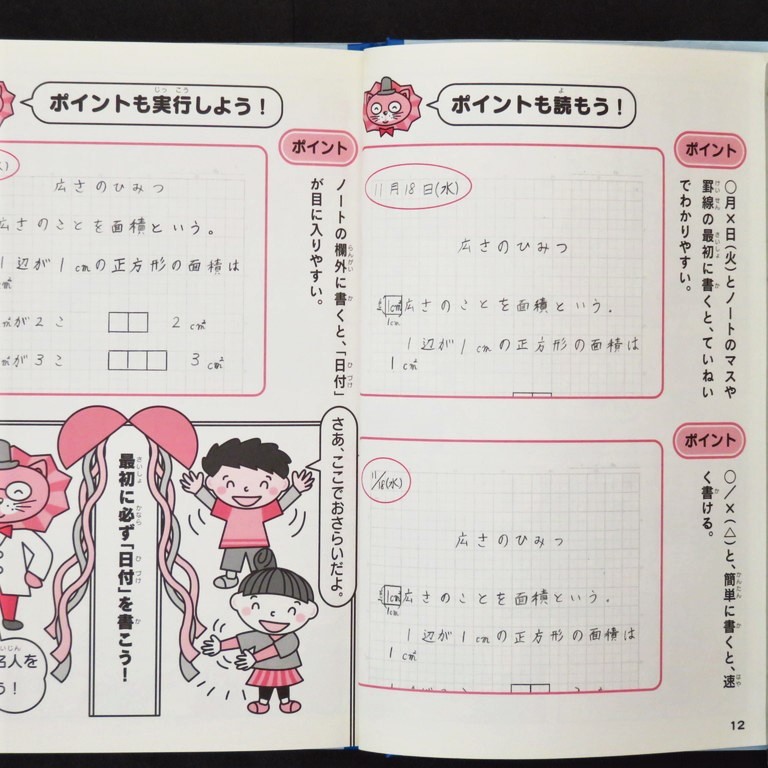 ポイントも読もう！
ポイント
○月×日（火）とノートのマスや
罫線の最初に書くと、ていねい
でわかりやすい。
11月18日(水)
広さのひみつ
1cm 広さのことを面積という.
1cm
1辺が1cmの正方形の面積は
1cm²
ポイント
○／×（△）と、簡単に書くと、速
く書ける。
11/18(水)
広さのひみつ
1cm 広さのことを面積という.
1cm
1辺が1cmの正方形の面積は
1cm²
12
ポイントも実行しよう！
ポイント
ノートの欄外に書くと、「日付」
が目に入りやすい。
広さのひみつ
広さのことを面積という。
1辺が1cmの正方形の面積は
が2こ 2cm²
が3こ 3cm²
さあ、ここでおさらいだよ。
最初に必ず「日付」を書こう！
名人を
う！